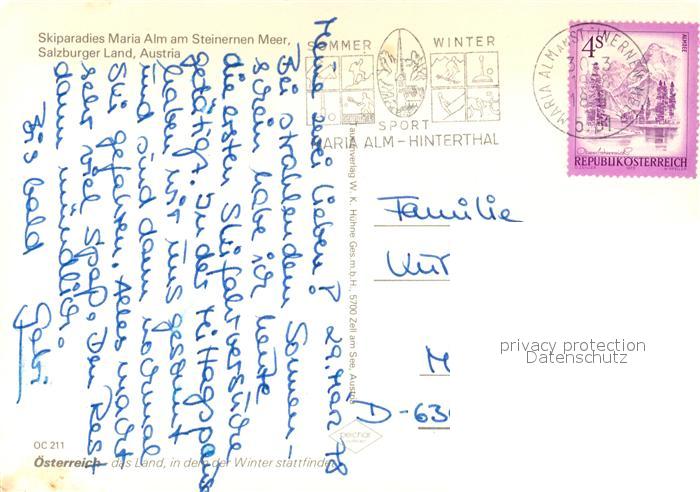 Skiparadies Maria Alm am Steinernen Meer,
Salzburger Land, Austria
SOMMER WINTER
SPORT
MARIA ALM – HINTERTHAL
MARIA ALM AM STEINERNEN MEER
4S
REPUBLIK ÖSTERREICH
Meine zwei Lieben! 29. März 78
Bei strahlendem Sonnen-
schein habe ich heute
die ersten Skifahrversuche
getätigt. In der Mittagspause
haben wir uns gesonnt
und sind dann nochmal
Ski gefahren. Alles macht
sehr viel Spaß. Den Rest
dann mündlich.
Bis bald
Gabi
Tauernverlag W. K. Hühne Ges.m.b.H., 5700 Zell am See, Austria
Familie
Kur
M
D-630
privacy protection
Datenschutz
OC 211
Österreich - das Land, in dem der Winter stattfindet